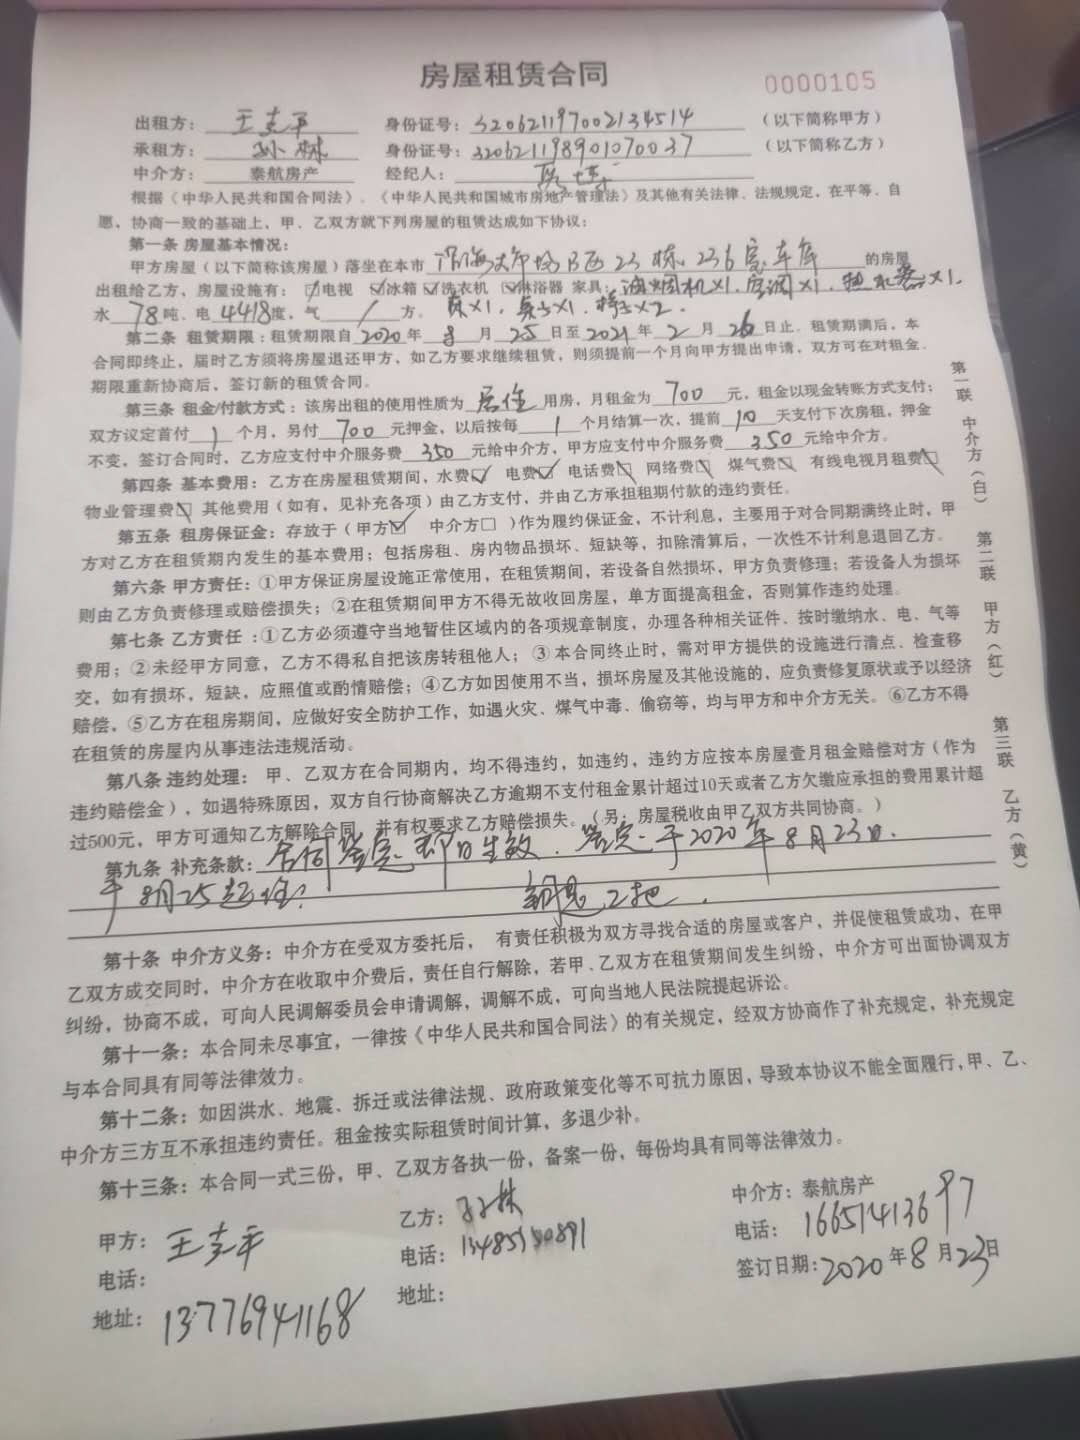 房屋租赁合同
0000105
出租方：王克平 身份证号：320621197002134514 （以下简称甲方）
承租方：孙林 身份证号：320621198901070037 （以下简称乙方）
中介方：泰航房产 经纪人：
根据《中华人民共和国合同法》、《中华人民共和国城市房地产管理法》及其他有关法律、法规规定，在平等、自
愿、协商一致的基础上，甲、乙双方就下列房屋的租赁达成如下协议：
第一条 房屋基本情况：
甲方房屋（以下简称该房屋）落坐在本市 滨海大市场B区23栋236室车库 的房屋
出租给乙方，房屋设施有：☑电视 ☑冰箱 ☑洗衣机 ☑淋浴器 家具：油烟机×1、空调×1、热水器×1、
床×1、桌子×1、椅子×2．
水 78 吨、电 4418 度，气 / 方。
第二条 租赁期限：租赁期限自 2020 年 8 月 25 日至 2021 年 2 月 26 日止。租赁期满后，本
合同即终止，届时乙方须将房屋退还甲方，如乙方要求继续租赁，则须提前一个月向甲方提出申请，双方可在对租金、
期限重新协商后，签订新的租赁合同。
第三条 租金/付款方式：该房出租的使用性质为 居住 用房，月租金为 700 元，租金以现金转账方式支付；
双方议定首付 1 个月，另付 700 元押金，以后按每 1 个月结算一次，提前 10 天支付下次房租，押金
不变，签订合同时，乙方应支付中介服务费 350 元给中介方，甲方应支付中介服务费 350 元给中介方。
第四条 基本费用：乙方在房屋租赁期间，水费☑ 电费☑ 电话费☐ 网络费☐ 煤气费☐ 有线电视月租费☐
物业管理费☐ 其他费用（如有，见补充各项）由乙方支付，并由乙方承担租期付款的违约责任。
第五条 租房保证金：存放于（甲方☑ 中介方☐ ）作为履约保证金，不计利息，主要用于对合同期满终止时，甲
方对乙方在租赁期内发生的基本费用；包括房租、房内物品损坏、短缺等，扣除清算后，一次性不计利息退回乙方。
第六条 甲方责任：①甲方保证房屋设施正常使用，在租赁期间，若设备自然损坏，甲方负责修理；若设备人为损坏
则由乙方负责修理或赔偿损失；②在租赁期间甲方不得无故收回房屋，单方面提高租金，否则算作违约处理。
第七条 乙方责任：①乙方必须遵守当地暂住区域内的各项规章制度，办理各种相关证件、按时缴纳水、电、气等
费用；②未经甲方同意，乙方不得私自把该房转租他人；③本合同终止时，需对甲方提供的设施进行清点、检查移
交，如有损坏，短缺，应照值或酌情赔偿；④乙方如因使用不当，损坏房屋及其他设施的，应负责修复原状或予以经济
赔偿，⑤乙方在租房期间，应做好安全防护工作，如遇火灾、煤气中毒、偷窃等，均与甲方和中介方无关。⑥乙方不得
在租赁的房屋内从事违法违规活动。
第八条 违约处理： 甲、乙双方在合同期内，均不得违约，如违约，违约方应按本房屋壹月租金赔偿对方（作为
违约赔偿金），如遇特殊原因，双方自行协商解决乙方逾期不支付租金累计超过10天或者乙方欠缴应承担的费用累计超
过500元，甲方可通知乙方解除合同，并有权要求乙方赔偿损失。（另：房屋税收由甲乙双方共同协商。）
第九条 补充条款：合同签定即日生效．签定于2020年8月23日．
于8月25起住． 钥匙2把．
第十条 中介方义务：中介方在受双方委托后， 有责任积极为双方寻找合适的房屋或客户，并促使租赁成功、在甲
乙双方成交同时，中介方在收取中介费后，责任自行解除，若甲、乙双方在租赁期间发生纠纷，中介方可出面协调双方
纠纷，协商不成，可向人民调解委员会申请调解，调解不成，可向当地人民法院提起诉讼。
第十一条：本合同未尽事宜，一律按《中华人民共和国合同法》的有关规定，经双方协商作了补充规定，补充规定
与本合同具有同等法律效力。
第十二条：如因洪水、地震、拆迁或法律法规、政府政策变化等不可抗力原因，导致本协议不能全面履行，甲、乙、
中介方三方互不承担违约责任。租金按实际租赁时间计算，多退少补。
第十三条：本合同一式三份，甲、乙双方各执一份，备案一份，每份均具有同等法律效力。
甲方：王克平
电话：
地址：13776941168
乙方：孙林
电话：13485150891
地址：
中介方：泰航房产
电话：16651413697
签订日期：2020年8月23日
第一联 中介方（白） 第二联 甲方（红） 第三联 乙方（黄）